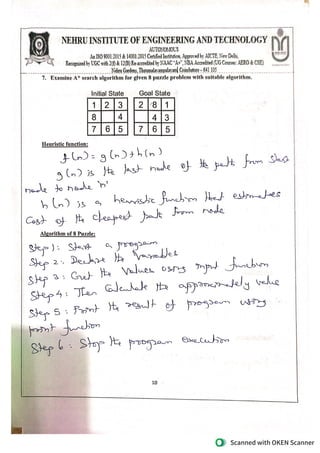 NEHRU INSTITUTE OF ENGINEERING AND TECHNOLOGY
AUTONOMOUS
An ISO 9001:2015 & 14001:2015 Certified Institution, Approved by AICTE, New Delhi,
Recognized by UGC with 2(f) & 12(B) Re-accredited by NAAC "A+", NBA Accredited (UG Courses: AERO & CSE)
Nehru Gardens, Thirumalayampalayam, Coimbatore - 641 105
7. Examine A* search algorithm for given 8 puzzle problem with suitable algorithm.
Initial State Goal State
1 2 3 2 8 1
8 4 4 3
7 6 5 7 6 5
Heuristic function:
f(n) = g(n) + h(n)
g(n) is the last node of the path from start
node to node 'n'
h(n) is a heuristic function that estimates
Cost of the cheapest path from node
Algorithm of 8 Puzzle:
Step 1: Start a program
Step 2: Declare the Variables
Step 3: Get the Values using input function
Step 4: Then Calculate the approximately value
Step 5: Print the result of program using
print function
Step 6: Stop the program execution
Scanned with OKEN Scanner